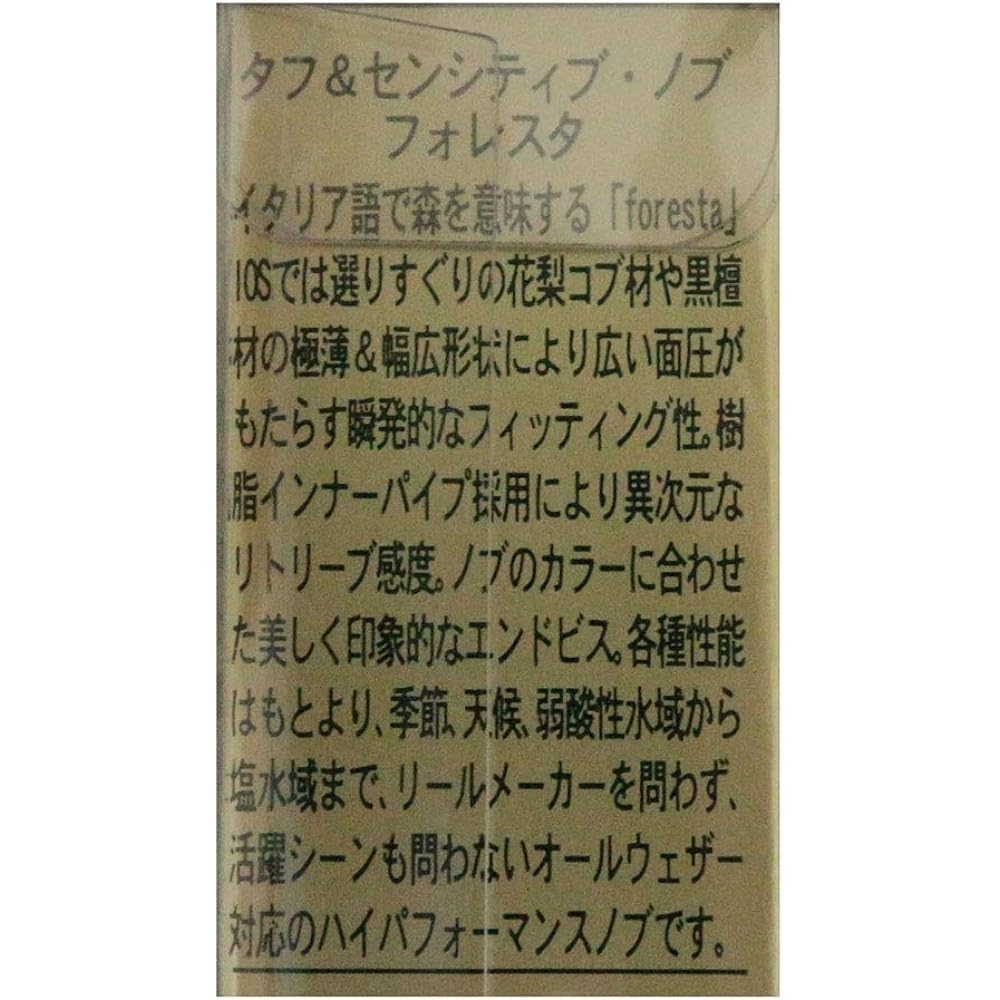 タフ＆センシティブ・ノブ
フォレスタ
イタリア語で森を意味する「foresta」
IOSでは選りすぐりの花梨コブ材や黒檀
材の極薄＆幅広形状により広い面圧が
もたらす瞬発的なフィッティング性。樹
脂インナーパイプ採用により異次元な
リトリーブ感度。ノブのカラーに合わせ
た美しく印象的なエンドビス。各種性能
はもとより、季節、天候、弱酸性水域から
塩水域まで、リールメーカーを問わず、
活躍シーンも問わないオールウェザー
対応のハイパフォーマンスノブです。